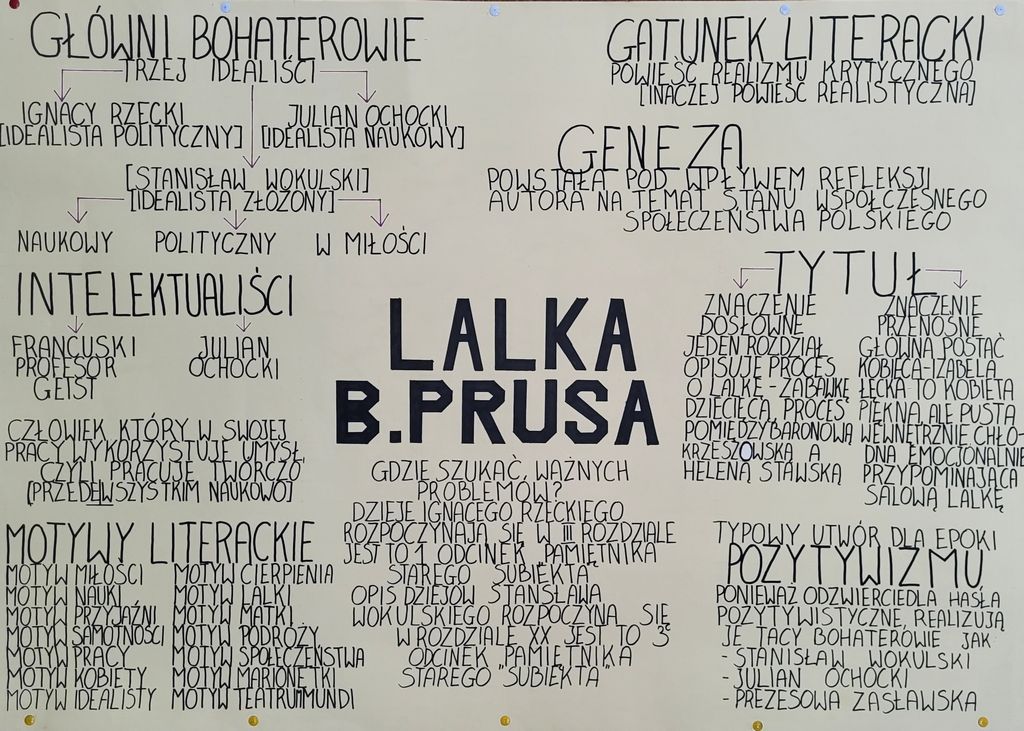 GŁÓWNI BOHATEROWIE
TRZEJ IDEALIŚCI
IGNACY RZECKI
[IDEALISTA POLITYCZNY]
JULIAN OCHOCKI
[IDEALISTA NAUKOWY]
[STANISŁAW WOKULSKI]
[IDEALISTA ZŁOŻONY]
NAUKOWY
POLITYCZNY
W MIŁOŚCI
INTELEKTUALIŚCI
FRANCUSKI
PROFESOR
GEIST
JULIAN
OCHOCKI
CZŁOWIEK KTÓRY W SWOJEJ
PRACY WYKORZYSTUJE UMYSŁ,
CZYLI PRACUJE TWÓRCZO
[PRZEDEWSZYSTKIM NAUKOWO]
MOTYWY LITERACKIE
MOTYW MIŁOŚCI
MOTYW NAUKI
MOTYW PRZYJAŹNI
MOTYW SAMOTNOŚCI
MOTYW PRACY
MOTYW KOBIETY
MOTYW IDEALISTY
MOTYW CIERPIENIA
MOTYW LALKI
MOTYW MATKI
MOTYW PODRÓŻY
MOTYW SPOŁECZEŃSTWA
MOTYW MARIONETKI
MOTYW TEATRUMMUNDI
LALKA
B.PRUSA
GDZIE SZUKAĆ, WAŻNYCH
PROBLEMÓW?
DZIEJE IGNACEGO RZECKIEGO
ROZPOCZYNAJĄ SIĘ W III ROZDZIALE
JEST TO 1 ODCINEK "PAMIĘTNIKA
STAREGO SUBIEKTA"
OPIS DZIEJÓW STANISŁAWA
WOKULSKIEGO ROZPOCZYNA SIĘ
W ROZDZIALE XX JEST TO 3
ODCINEK "PAMIĘTNIKA
STAREGO SUBIEKTA"
GATUNEK LITERACKI
POWIEŚĆ REALIZMU KRYTYCZNEGO
[INACZEJ POWIEŚĆ REALISTYCZNA]
GENEZA
POWSTAŁA POD WPŁYWEM REFLEKSJI
AUTORA NA TEMAT STANU WSPÓŁCZESNEGO
SPOŁECZEŃSTWA POLSKIEGO
TYTUŁ
ZNACZENIE
DOSŁOWNE
JEDEN ROZDZIAŁ
OPISUJE PROCES
O LALKĘ - ZABAWKĘ
DZIECIĘCĄ, PROCES
POMIĘDZY BARONOWĄ
KRZESZOWSKĄ A
HELENĄ STAWSKĄ
ZNACZENIE
PRZENOŚNE
GŁÓWNA POSTAĆ
KOBIECA-IZABELA
ŁĘCKA TO KOBIETA
PIĘKNA, ALE PUSTA
WEWNĘTRZNIE CHŁO-
DNA EMOCJONALNIE
PRZYPOMINAJĄCA
SALOWĄ LALKĘ
TYPOWY UTWÓR DLA EPOKI
POZYTYWIZMU
PONIEWAŻ ODZWIERCIEDLA HASŁA
POZYTYWISTYCZNE, REALIZUJĄ
JE TACY BOHATEROWIE JAK
-STANISŁAW WOKULSKI
-JULIAN OCHOCKI
-PREZESOWA ZASŁAWSKA